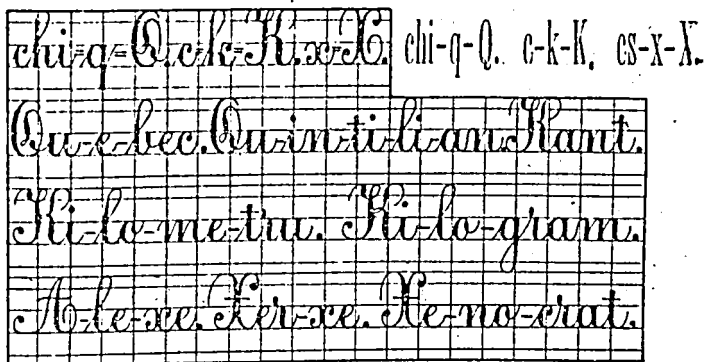 chi-q-Q. c-k-K. x-X. chi-q-Q. c-k-K. cs-x-X.
Qu-e-bec. Qu-in-ti-li-an. Kant.
Ki-lo-me-tru. Ki-lo-gram.
A-le-xe. Xer-xe. Xe-no-crat.